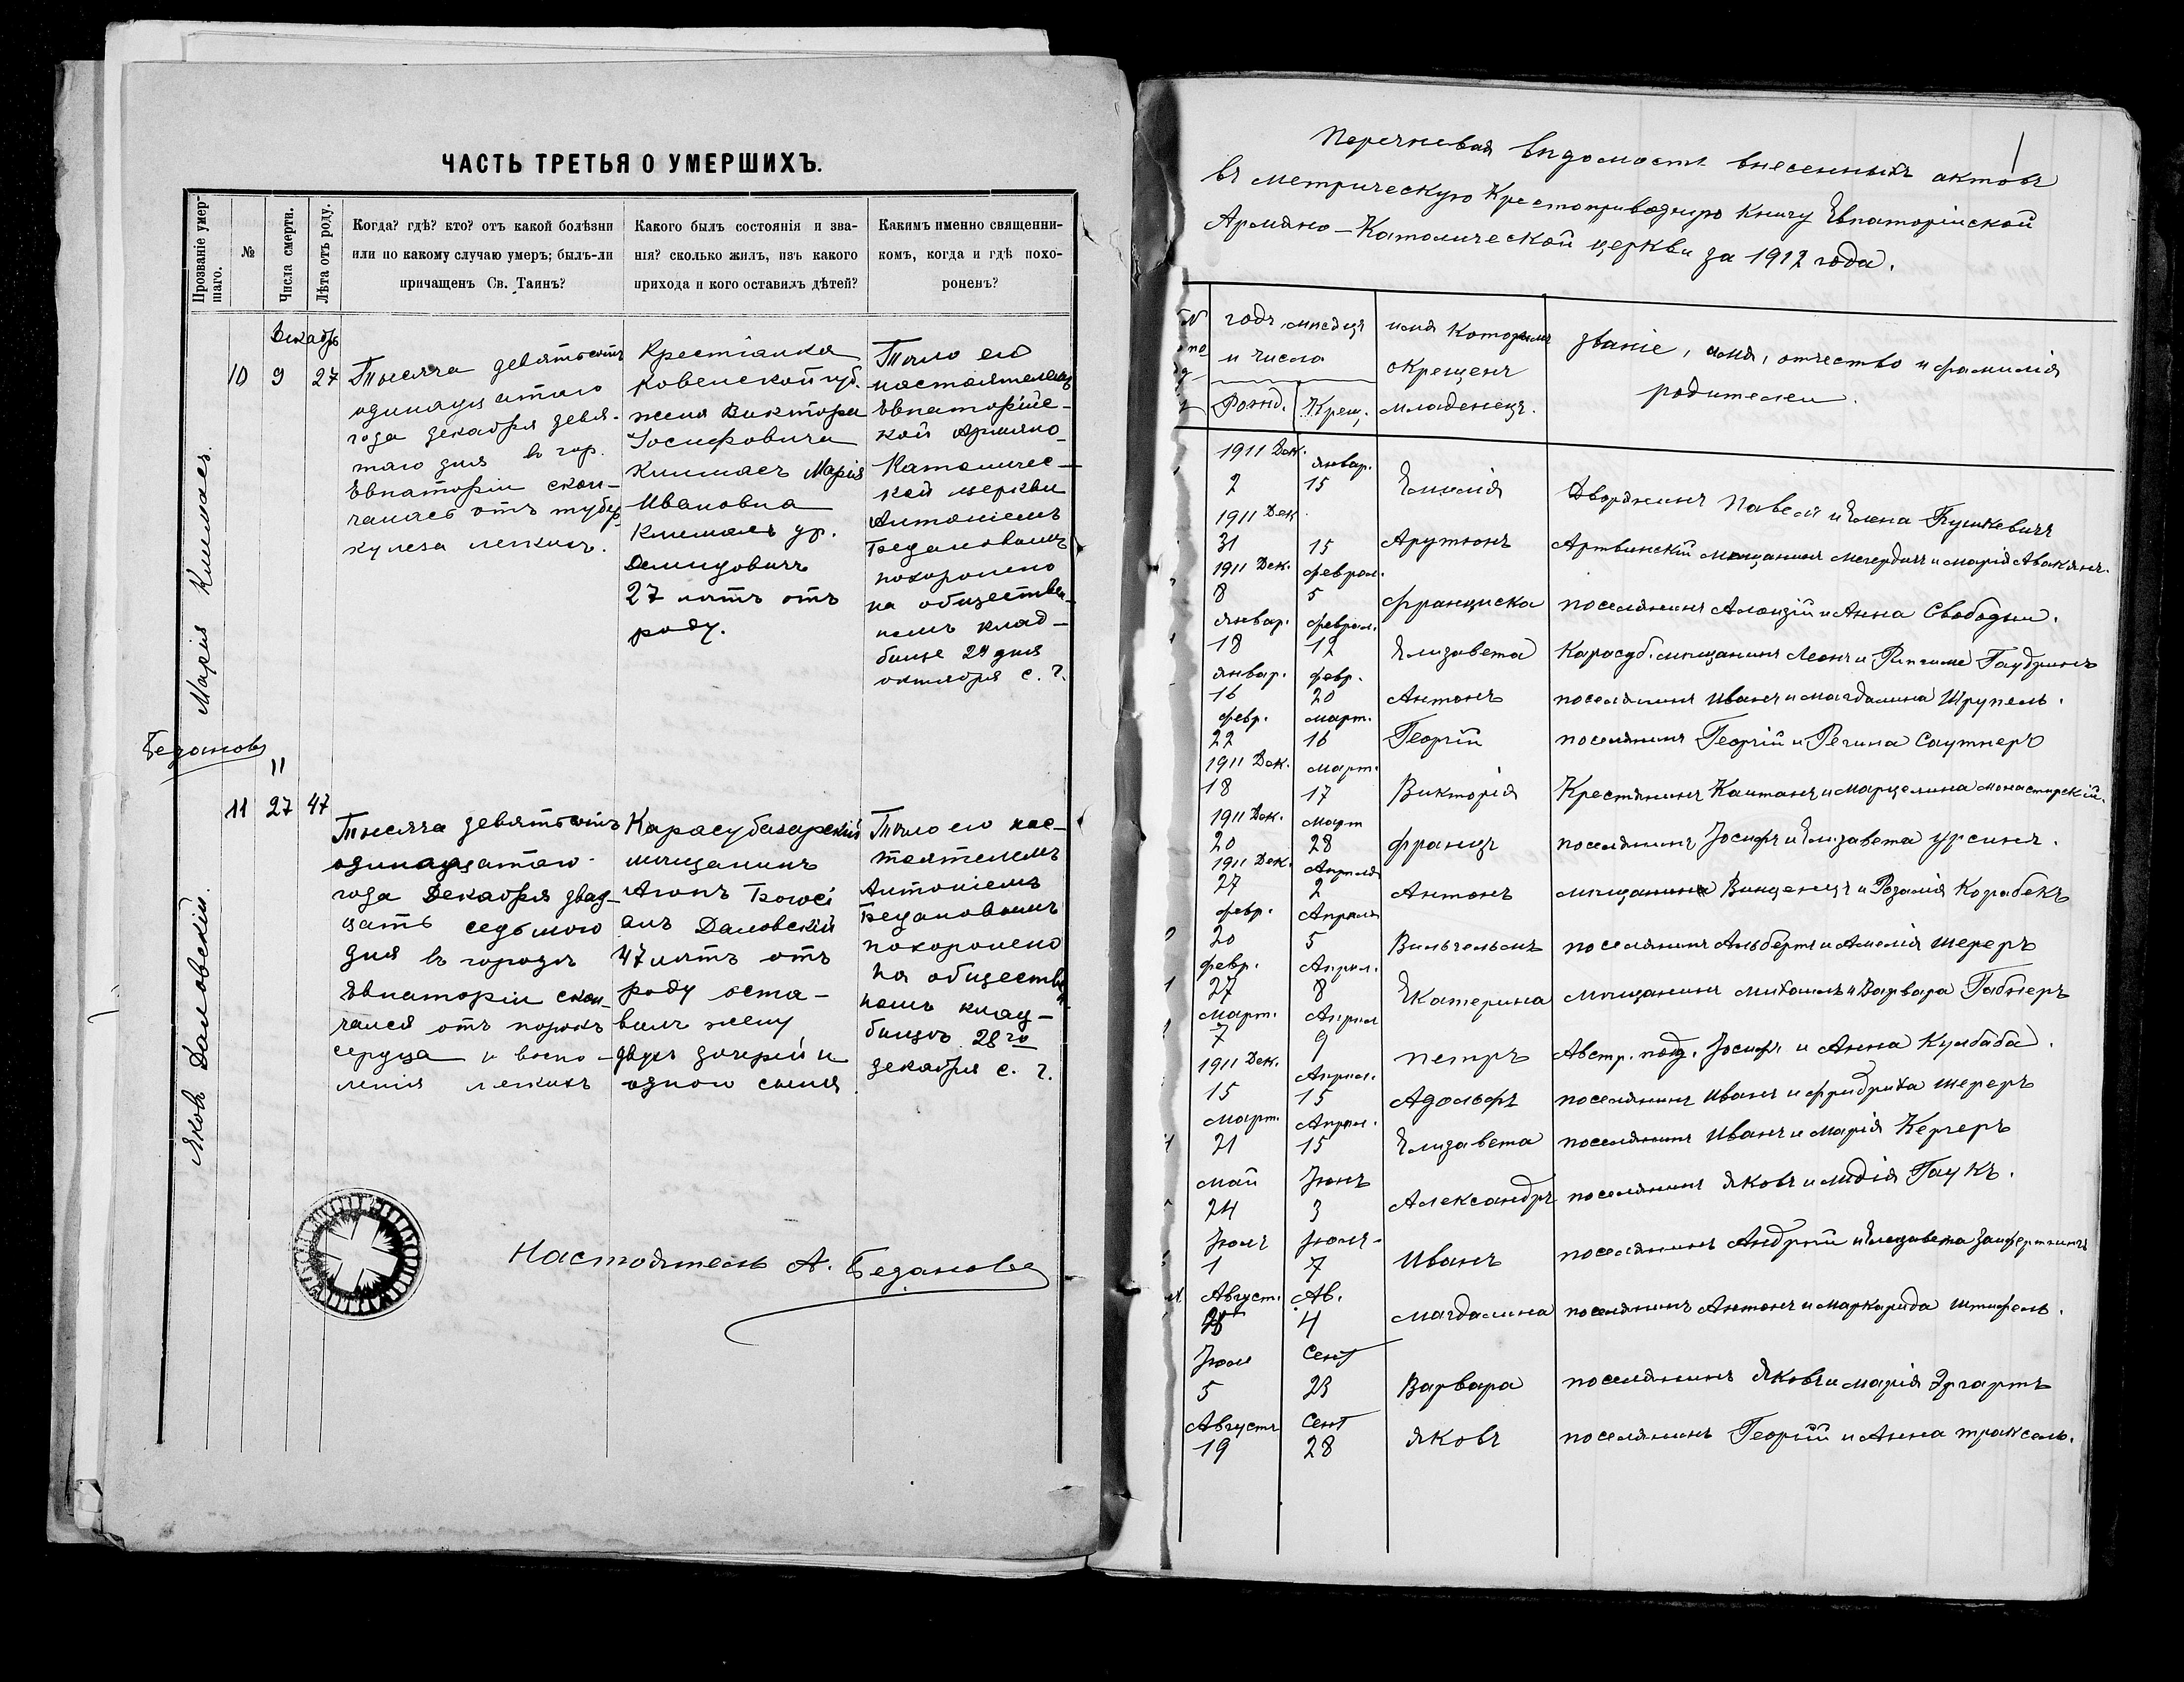 ЧАСТЬ ТРЕТЬЯ О УМЕРШИХЪ.
Прозваніе умер-
шаго.
№
Числа смерти.
Лѣта отъ роду.
Когда? гдѣ? кто? отъ какой болѣзни
или по какому случаю умеръ; былъ-ли
причащенъ Св. Таинъ?
Какого былъ состоянія и зва-
нія? сколько жилъ, изъ какого
прихода и кого оставилъ дѣтей?
Какимъ именно священни-
комъ, когда и гдѣ похо-
роненъ?
Марія Климасъ.
Декабр
10 9 27
Тысяча девятьсотъ
одинадцатого
года декабря девя-
таго дня въ гор.
Евпаторіи скон-
чалась отъ тубер
кулеза легкихъ.
Крестіанка
Ковенской губ.
жена Виктора
Іосифовича
Климасъ Марія
Ивановна
Климасъ ур.
27 лѣтъ отъ
роду.
Тѣло ея
настоятелемъ
Евпаторійс-
кой Армяно-
Католичес-
кой церкви
Антоніемъ
Безановымъ
похоронено
на обществен-
номъ клад-
бище 24 дня
октября с. г.
Безановъ
Яковъ Даловскій.
"
11 27 47
Тысяча девятьсотъ
одинадцатаго
года Декабря двад-
цать седьмого
дня въ городѣ
Евпаторіи скон-
чался отъ порокъ
сердца и воспо-
ленія легкихъ
Карасубазарскій
мѣщанинъ
Агопъ Богосі
анъ Даловскій
47 лѣтъ отъ
роду оста-
вилъ жену
двухъ дочерей и
одного сына
Тѣло его нас-
тоятелемъ
Антоніемъ
Безановымъ
похоронено
на обществен
номъ клад-
бищѣ 28го
декабря с. г.
Настоятель А. Безановъ
Перечневая вѣдомость внесенныхъ актовъ
въ метрическую Крестоприводную Книгу Евпаторійской
Армяно-Католической церкви за 1912 года.
годъ, мѣсяцъ
и число
Рожд. Крещ.
имя которымъ
Крещенъ
младенецъ.
званіе, имя, отчество и фамилія
родителей.
1911 Дек. январ.
2 15 Емилія Дворянинъ Павелъ и Елена Пушкевичъ
1911 Дек.
31 15 Арутюнъ Артвинскій мѣщанинъ Мегердичъ и Марія Авакянъ.
1911 Дек. феврал.
8 5 Франциска поселянинъ Алоизій и Анна Свободы.
январ. феврал.
18 12 Елизавета Карасуб. мѣщанинъ Леонъ и Рипсиме Гаудринъ
январ. февр.
16 20 Антонъ поселянинъ Иванъ и Магдалина Шрупель.
февр. март.
22 16 Георгій поселянинъ Георгій и Регина Саутнеръ
1911 Дек. март.
18 17 Викторія Крестянинъ Каитанъ и Марцелина Монастирскій.
1911 Дек. март
20 28 Францъ поселянинъ Іосифъ и Елизавета Урсинъ.
1911 Дек. Апреля
27 2 Антонъ мѣщанинъ Винценцъ и Розалія Корабекъ
февр. Апреля
20 5 Вильгельмъ поселянинъ Альбертъ и Амелія Шереръ
февр. Апрел.
27 8 Екатерина мѣщанинъ Михаилъ и Варвара Габнеръ
март. Апрел
7 9 Петръ Австр. под. Іосифъ и Анна Кулбаба.
1911 Дек. Апрел.
15 15 Адольфъ поселянинъ Иванъ и Фридриха Шереръ
март. Апрел.
21 15 Елизавета поселянинъ Иванъ и Марія Кергеръ
май Іюнъ
24 3 Александръ поселянинъ Яковъ и Лидія Гаукъ.
Іюлъ Іюля
1 7 Иванъ поселянинъ Андрей и Елизавета
Август. Ав.
4 Магдалина поселянинъ Антонъ и Маркарида Штифель.
Іюля Сент
5 23 Варвара поселянинъ Яковъ и Марія Эргартъ
Августъ Сент
19 28 Яковъ поселянинъ Георгій и Анна Траксель.